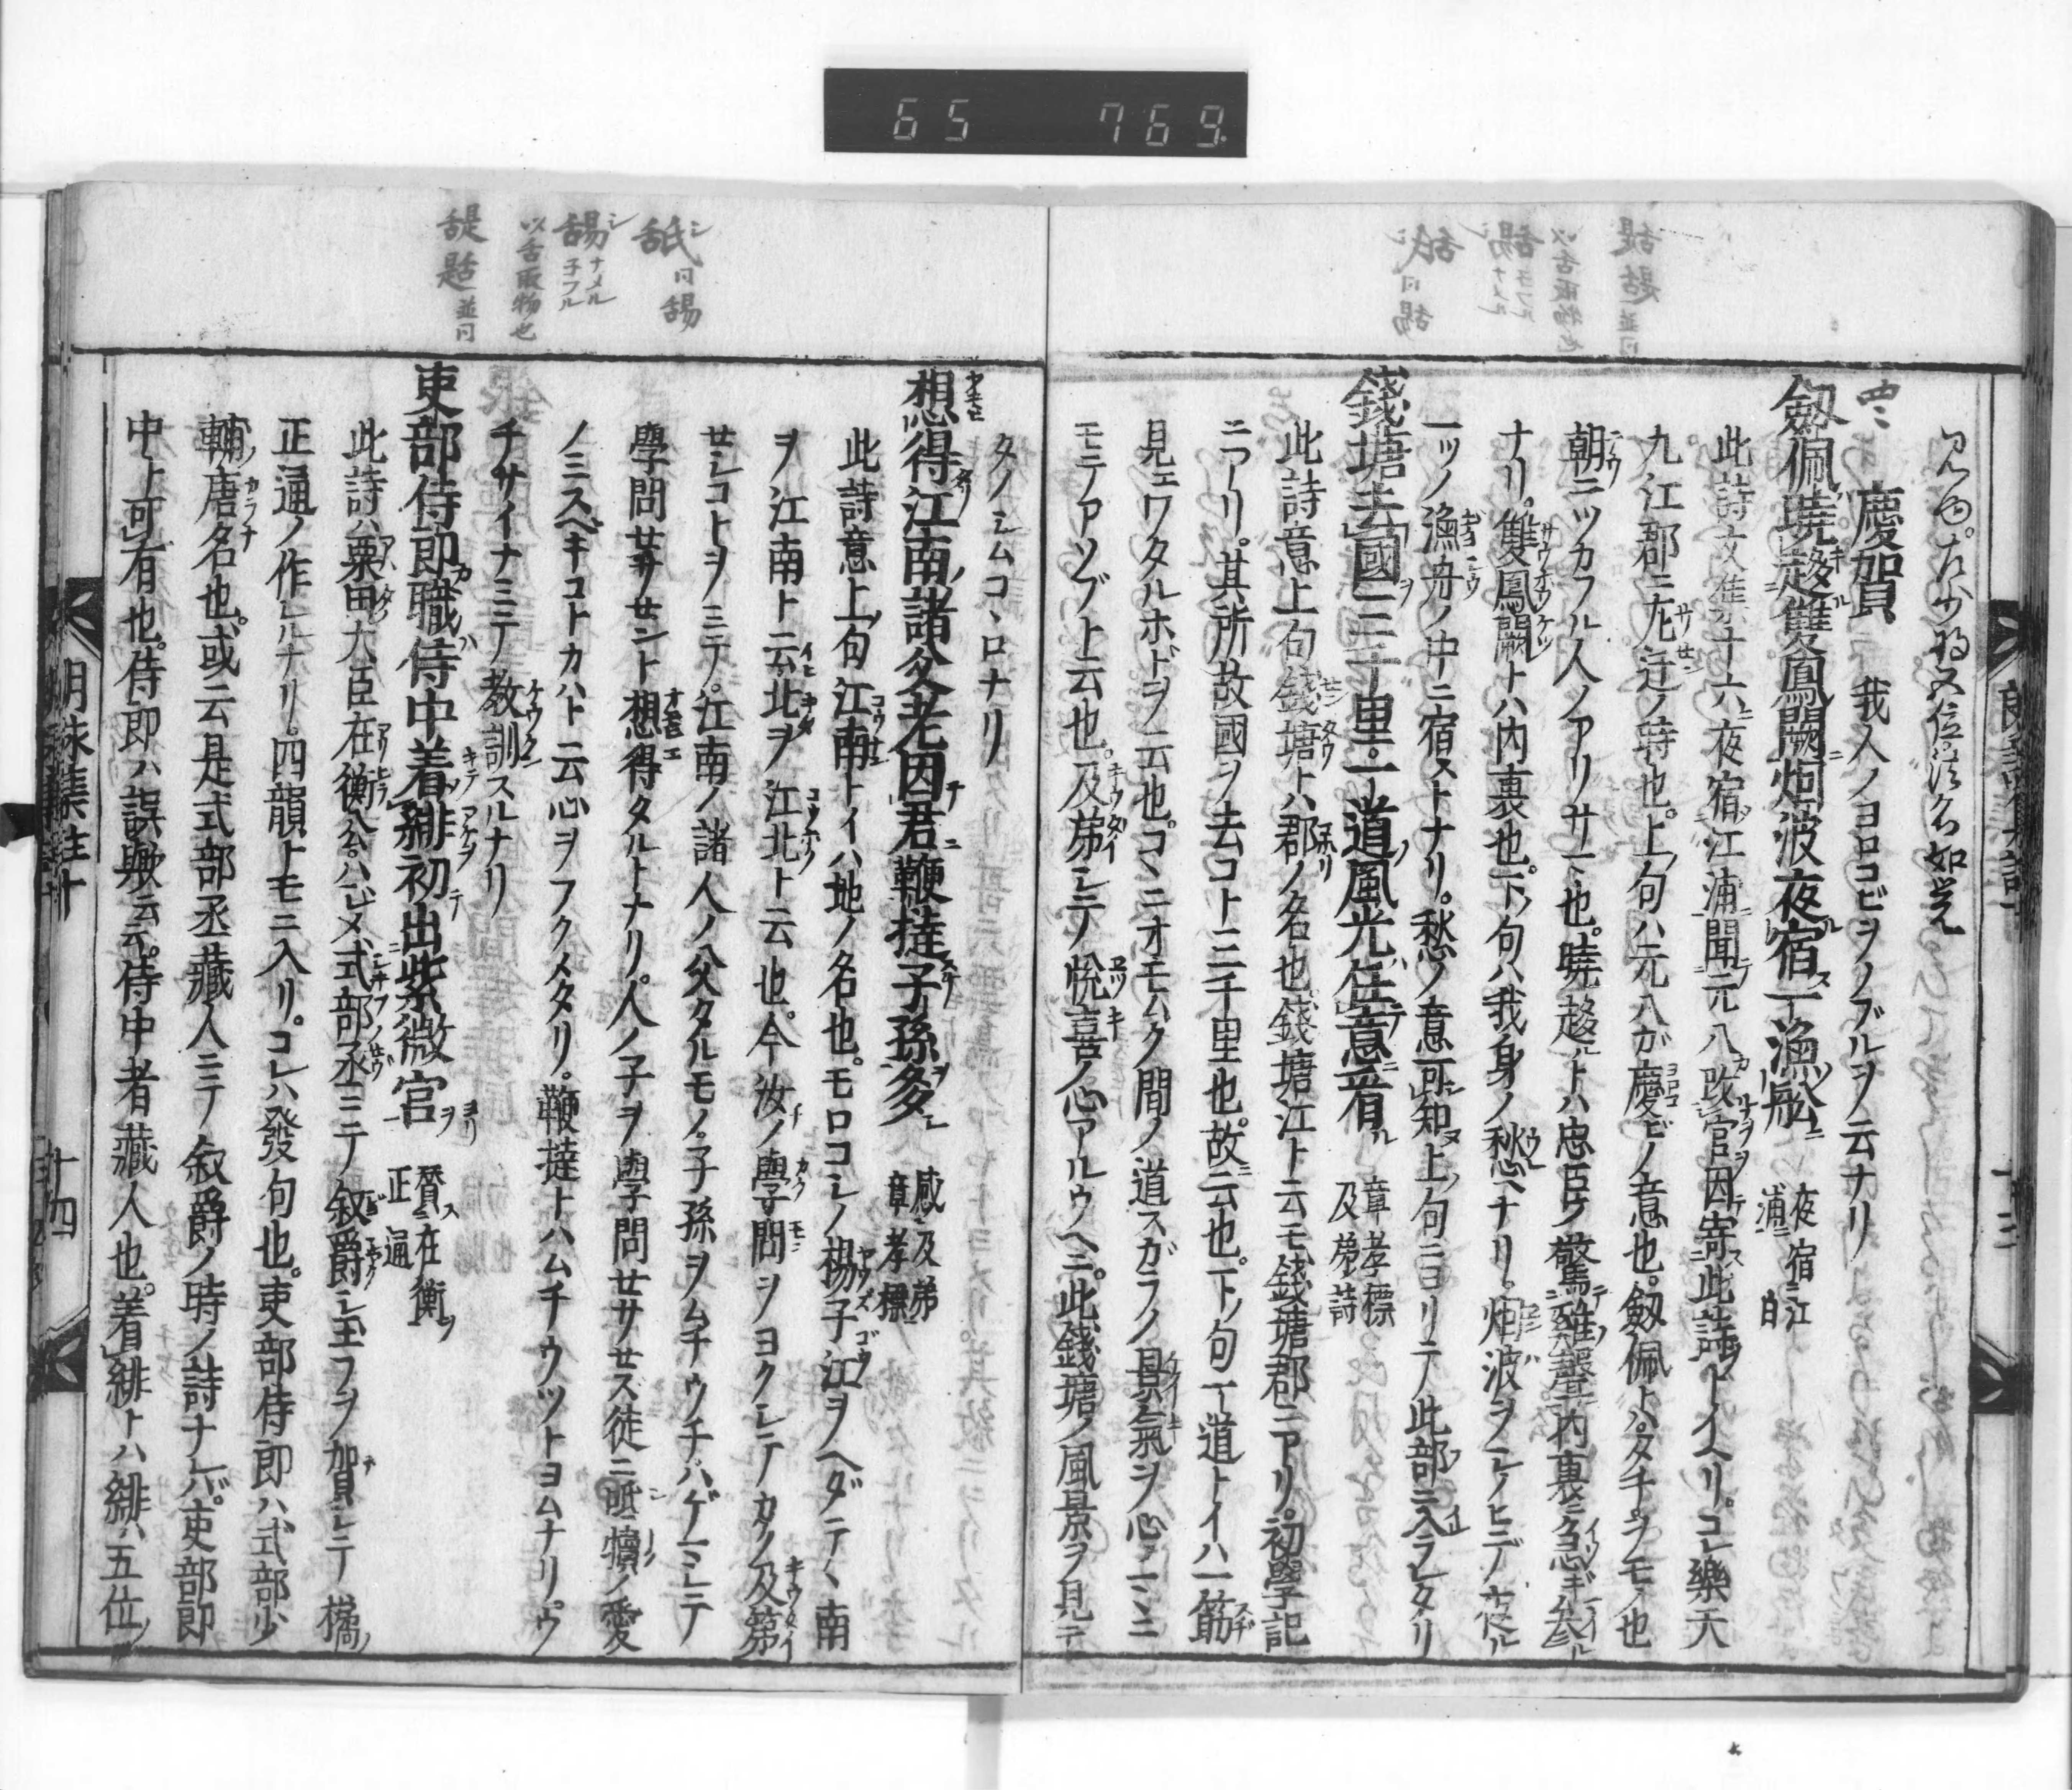 65 769
慶賀 我人ノヨロコビヲノブルヲ云ナリ
劔佩曉趍雙鳳闕烟波夜宿一漁舩 夜宿江浦 白
此詩文集十六夜宿江浦聞元八改官因寄此詩トイヘリコレ樂天
九江郡ニ左迁ノ時也上句ハ元八が慶ビノ意也劔佩トハタチヲモノ也
朝ニツカフル人ノアリサマ也曉趍トハ忠臣ノ驚雞聲内裏ニ急ギ参ル
ナリ雙鳳闕トハ内裏也下句ハ我身ノ愁ヘナリ烟波ヲシノヒデ夜ル
一ツノ漁舟ノ中ニ宿ストナリ愁ノ意可知上ノ句ニヨリテ此部ニ入ラレタリ
錢塘去國三千里一道風光任意看 章孝標 及第詩
此詩意上句錢塘トハ郡ノ名也錢塘江ト云モ錢塘郡ニアリ初學記
ニアリ其所故國ヲ去コト三千里也故ニ云也下ノ句一道トイハ一筋
見エワタルホドヲノ云也コヽニオモムク間ノ道スガラノ景氣ヲ心ノマヽニ
モテアソブト云也及第シテノ悦喜ノ心アルウヘニ此錢塘ノ風景ヲ見テ
舐 同舓
舓 ナメル 子フル
以舌取物也
䑛 並同
タノシムコヽロナリ
想得江南諸父老因君鞭撻子孫多 感及第 章孝標
此詩意上句江南トイハ地ノ名也モロコシノ楊子江ヲヘダテヽ南
ヲ江南ト云北ヲ江北ト云也今汝ノ學問ヲヨクシテカク及第
セシコトヲミテ江南ノ諸人ノ父タルモノ子孫ヲムチウチハゲマシテ
學問セサセント想得タルトナリ人ノ子ヲ學問セサセズ徒ニ舐犢ノ愛
ノミスベキコトカハト云心ヲフクメタリ鞭撻トハムチウツトヨムナリウ
チサイナミテ教訓スルナリ
吏部侍郎職侍中着緋初出紫微宮 賀在衡 正通
此詩ハ粟田大臣在衡公ハジメ式部丞ニテ叙爵シ玉フヲ賀シテ橘ノ
正通ノ作レルナリ四韻トモニ入リコレハ發句也吏部侍郎ハ式部少
輔ノ唐名也或云是式部丞藏人ニテ叙爵ノ時ノ詩ナレバ吏部郎
中ト可有也侍郎ハ誤歟云云侍中者藏人也着緋トハ緋ハ五位ノ
朗詠集註十
十四